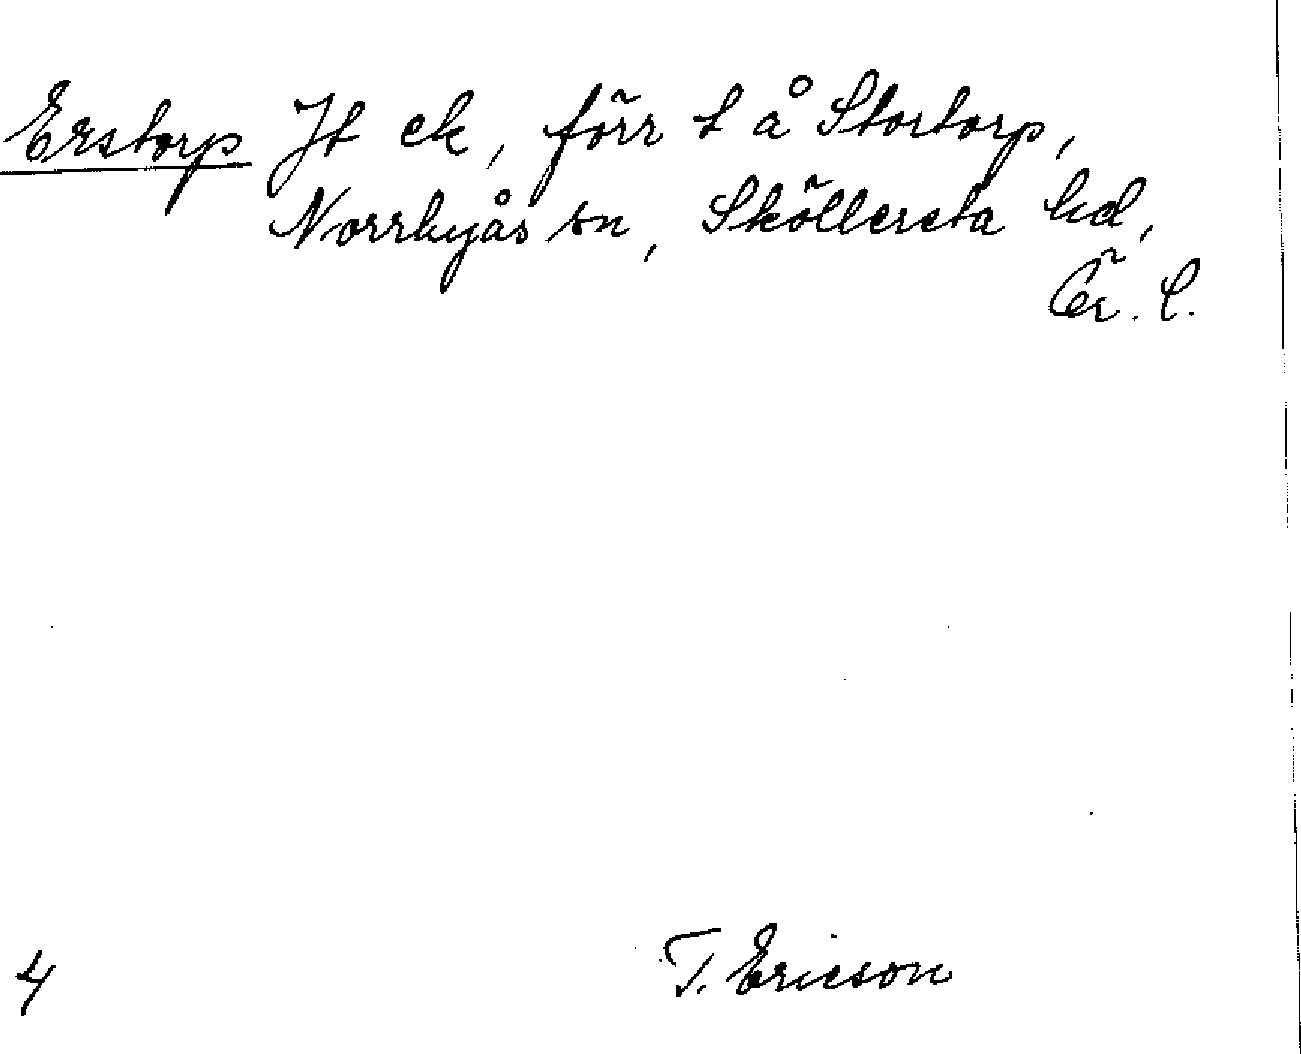 Erstorp Jt ek, förr t å Stortorp,
Norrbyås sn, Sköllersta hd,
Ör. l.
4
T. Ericson